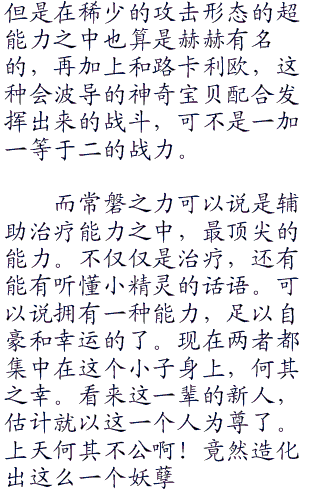 但是在稀少的攻击形态的超
能力之中也算是赫赫有名
的，再加上和路卡利欧，这
种会波导的神奇宝贝配合发
挥出来的战斗，可不是一加
一等于二的战力。
而常磐之力可以说是辅
助治疗能力之中，最顶尖的
能力。不仅仅是治疗，还有
能有听懂小精灵的话语。可
以说拥有一种能力，足以自
豪和幸运的了。现在两者都
集中在这个小子身上，何其
之幸。看来这一辈的新人，
估计就以这一个人为尊了。
上天何其不公啊！竟然造化
出这么一个妖孽